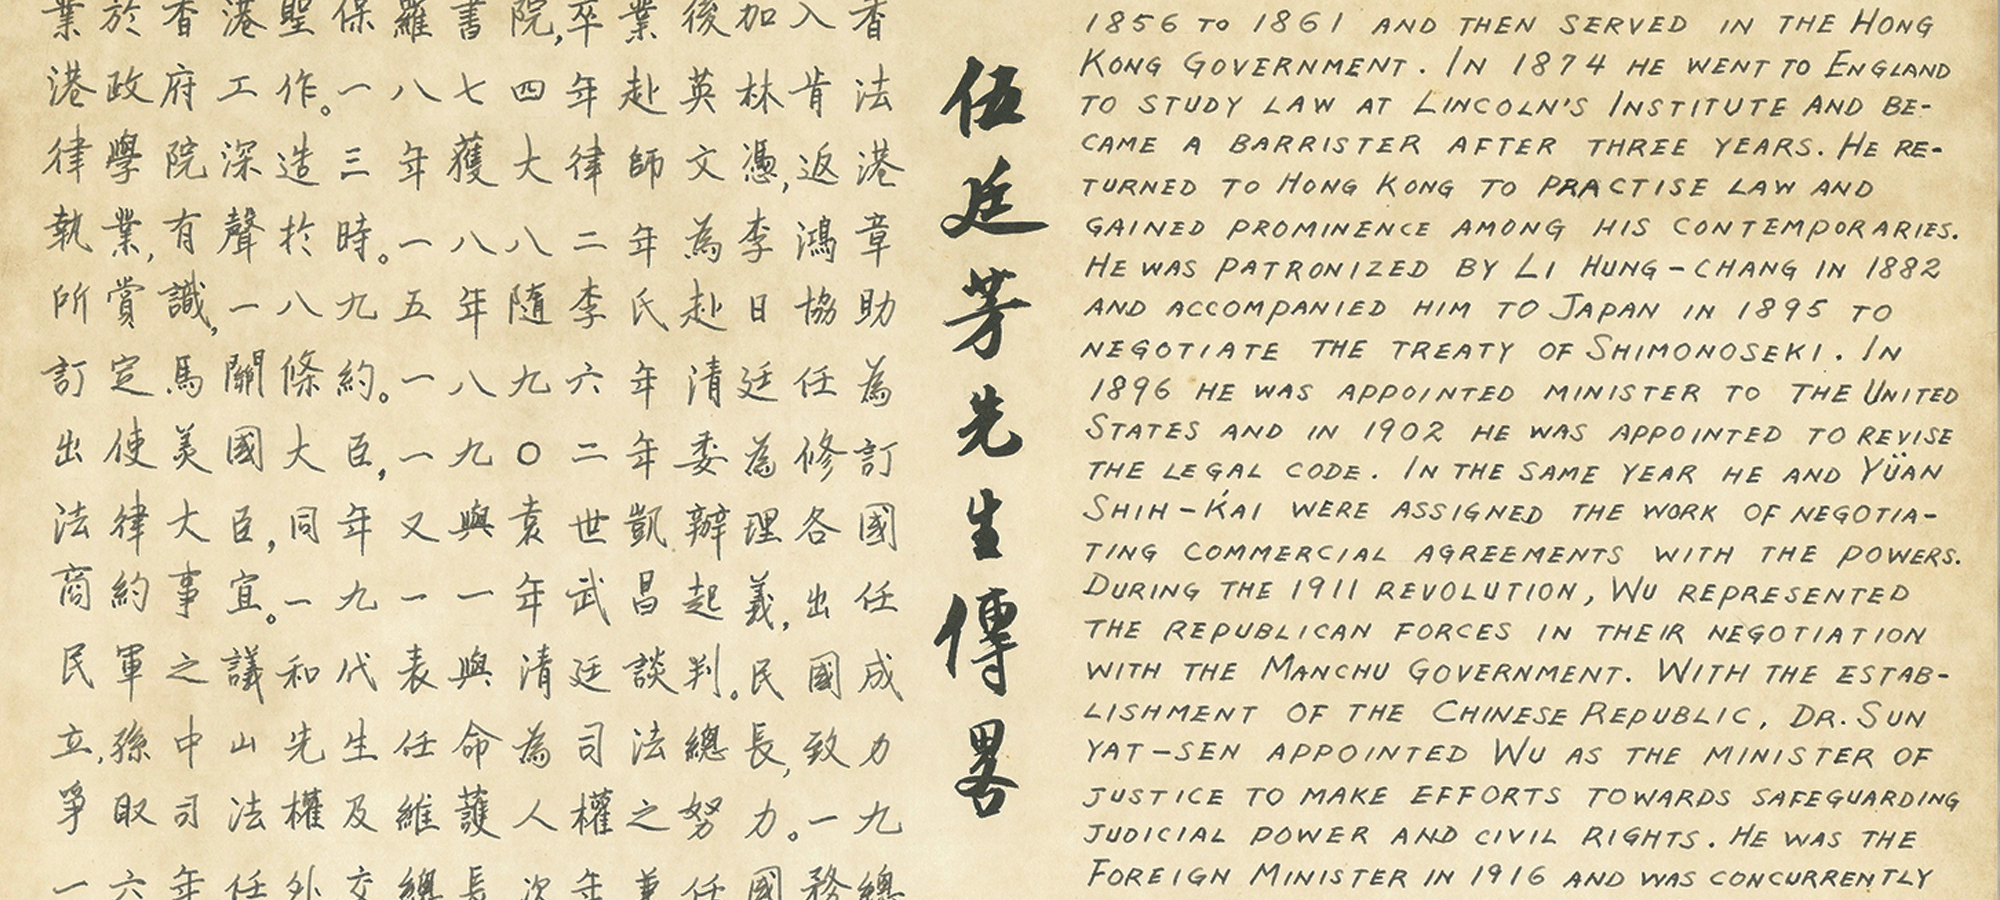 業於香港聖保羅書院,卒業後加入香
港政府工作。一八七四年赴英林肯法
律學院深造三年獲大律師文憑,返港
執業,有聲於時。一八八二年為李鴻章
所賞識,一八九五年隨李氏赴日協助
訂定馬關條約。一八九六年清廷任為
出使美國大臣,一九〇二年委為修訂
法律大臣,同年又與袁世凱辦理各國
商約事宜。一九一一年武昌起義,出任
民軍之議和代表與清廷談判。民國成
立,孫中山先生任命為司法總長,致力
爭取司法權及維護人權之努力。一九
一六年任外交總長次年兼任國務總
伍廷芳先生傳畧
1856 TO 1861 AND THEN SERVED IN THE HONG
KONG GOVERNMENT. IN 1874 HE WENT TO ENGLAND
TO STUDY LAW AT LINCOLN'S INSTITUTE AND BE-
CAME A BARRISTER AFTER THREE YEARS. HE RE-
TURNED TO HONG KONG TO PRACTISE LAW AND
GAINED PROMINENCE AMONG HIS CONTEMPORARIES.
HE WAS PATRONIZED BY LI HUNG-CHANG IN 1882
AND ACCOMPANIED HIM TO JAPAN IN 1895 TO
NEGOTIATE THE TREATY OF SHIMONOSEKI. IN
1896 HE WAS APPOINTED MINISTER TO THE UNITED
STATES AND IN 1902 HE WAS APPOINTED TO REVISE
THE LEGAL CODE. IN THE SAME YEAR HE AND YÜAN
SHIH-K'AI WERE ASSIGNED THE WORK OF NEGOTIA-
TING COMMERCIAL AGREEMENTS WITH THE POWERS.
DURING THE 1911 REVOLUTION, WU REPRESENTED
THE REPUBLICAN FORCES IN THEIR NEGOTIATION
WITH THE MANCHU GOVERNMENT. WITH THE ESTAB-
LISHMENT OF THE CHINESE REPUBLIC, DR. SUN
YAT-SEN APPOINTED WU AS THE MINISTER OF
JUSTICE TO MAKE EFFORTS TOWARDS SAFEGUARDING
JUDICIAL POWER AND CIVIL RIGHTS. HE WAS THE
FOREIGN MINISTER IN 1916 AND WAS CONCURRENTLY